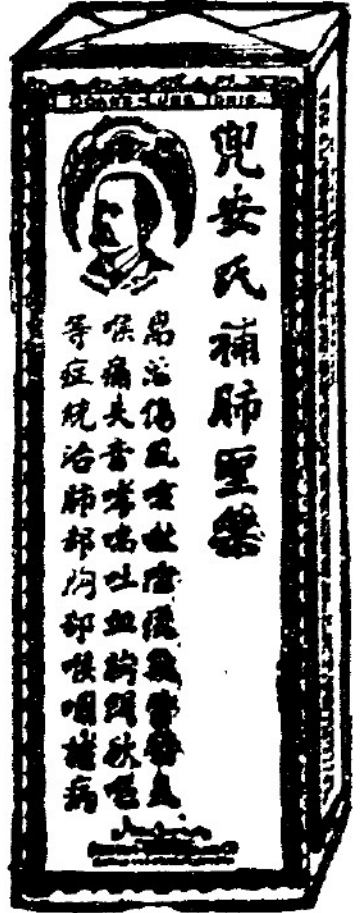 DOAN'S LUNG TONIC
兜安氏補肺聖藥
治傷風咳嗽氣管發炎
喉痛失音哮喘吐血胸悶
等症統治肺部胸部喉咽諸病